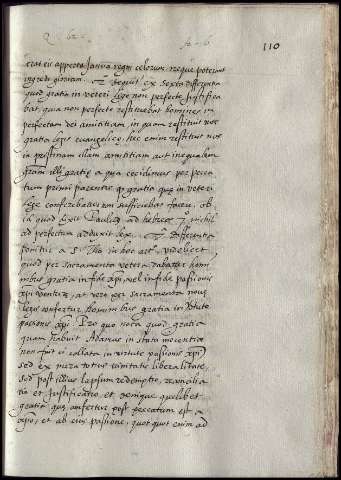 Q. 62. ar. 6. 110
erat eis apperta Janua regni celorum neque poterant
ingredi gloriam. Sequit ex sexta differentia
quod gratia in veteri lege non perfecte iustifica
bat, quia non perfecte restituebat homines in
perfectam dei amicitiam, in quam restituit nos
gratia legis euangelicę, hęc enim restituit nos
in pristinam illam amicitiam aut inequalem
gram illi gratię a qua cecidimus per pecca
tum primi parentis, quod gratia quę in veteri
lege conferebatur non sufficiebat facere, ob
id quod dixit Paulus ad hebreos 7 nichil
ad perfectum adduxit lex. Differentia
ponitur a S. Tho in hoc art. videlicet
quod per sacramenta vetera dabatur homi
nibus gratia in fide xpi, vel in fide passionis
xpi venturę, at vero per sacramenta nouę
legis confertur hominibus gratia in virtute
passionis xpi. Pro quo nota quod gratia
quam habuit Adamus in statu innocentię
non fuit ei collata in virtute passionis xpi
sed ex pura totius trinitatis liberalitate,
sed post illius lapsum redemptio, reconcilia
tio et Justificatio, et denique quęlibet
gratia quę confertur post peccatum est a
xpo, et ab eius passione, quot quot enim ad